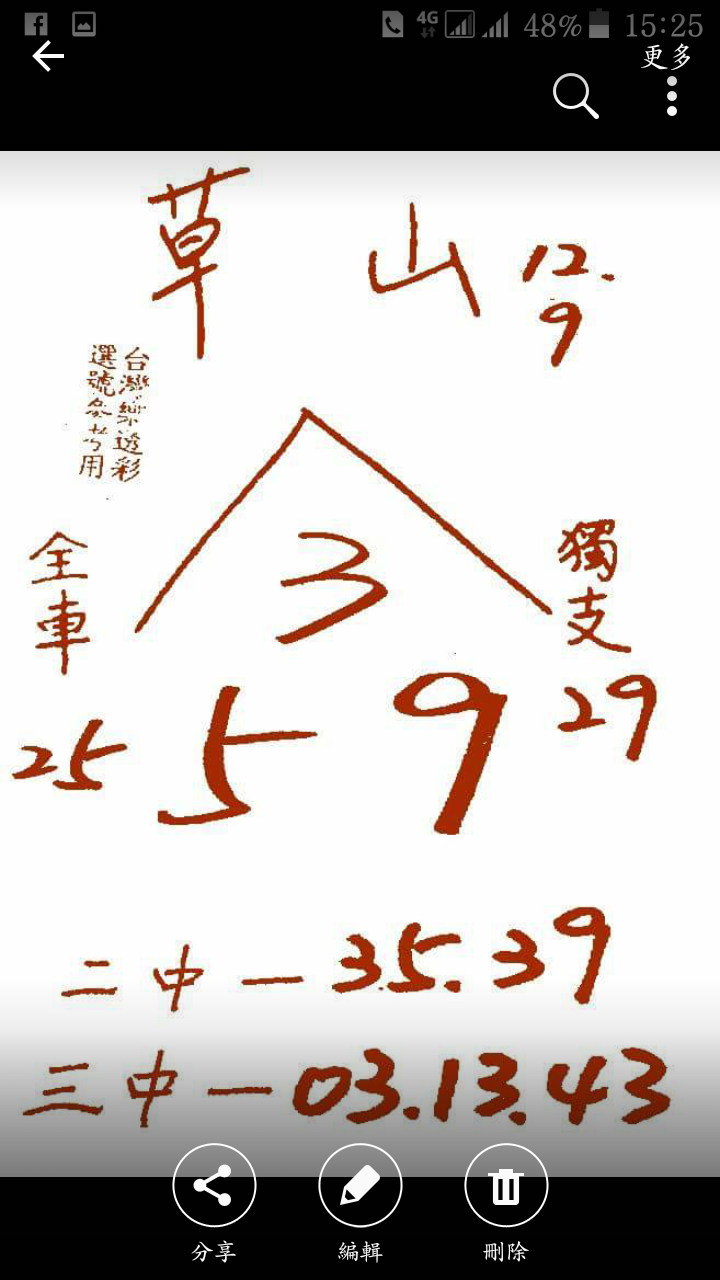 4G 48% 15:25
更多
草山 12.
9
台灣樂透彩
選號參考用
3
全車
獨支
25
5 9
29
二中一35.39
三中一03.13.43
分享 編輯 刪除